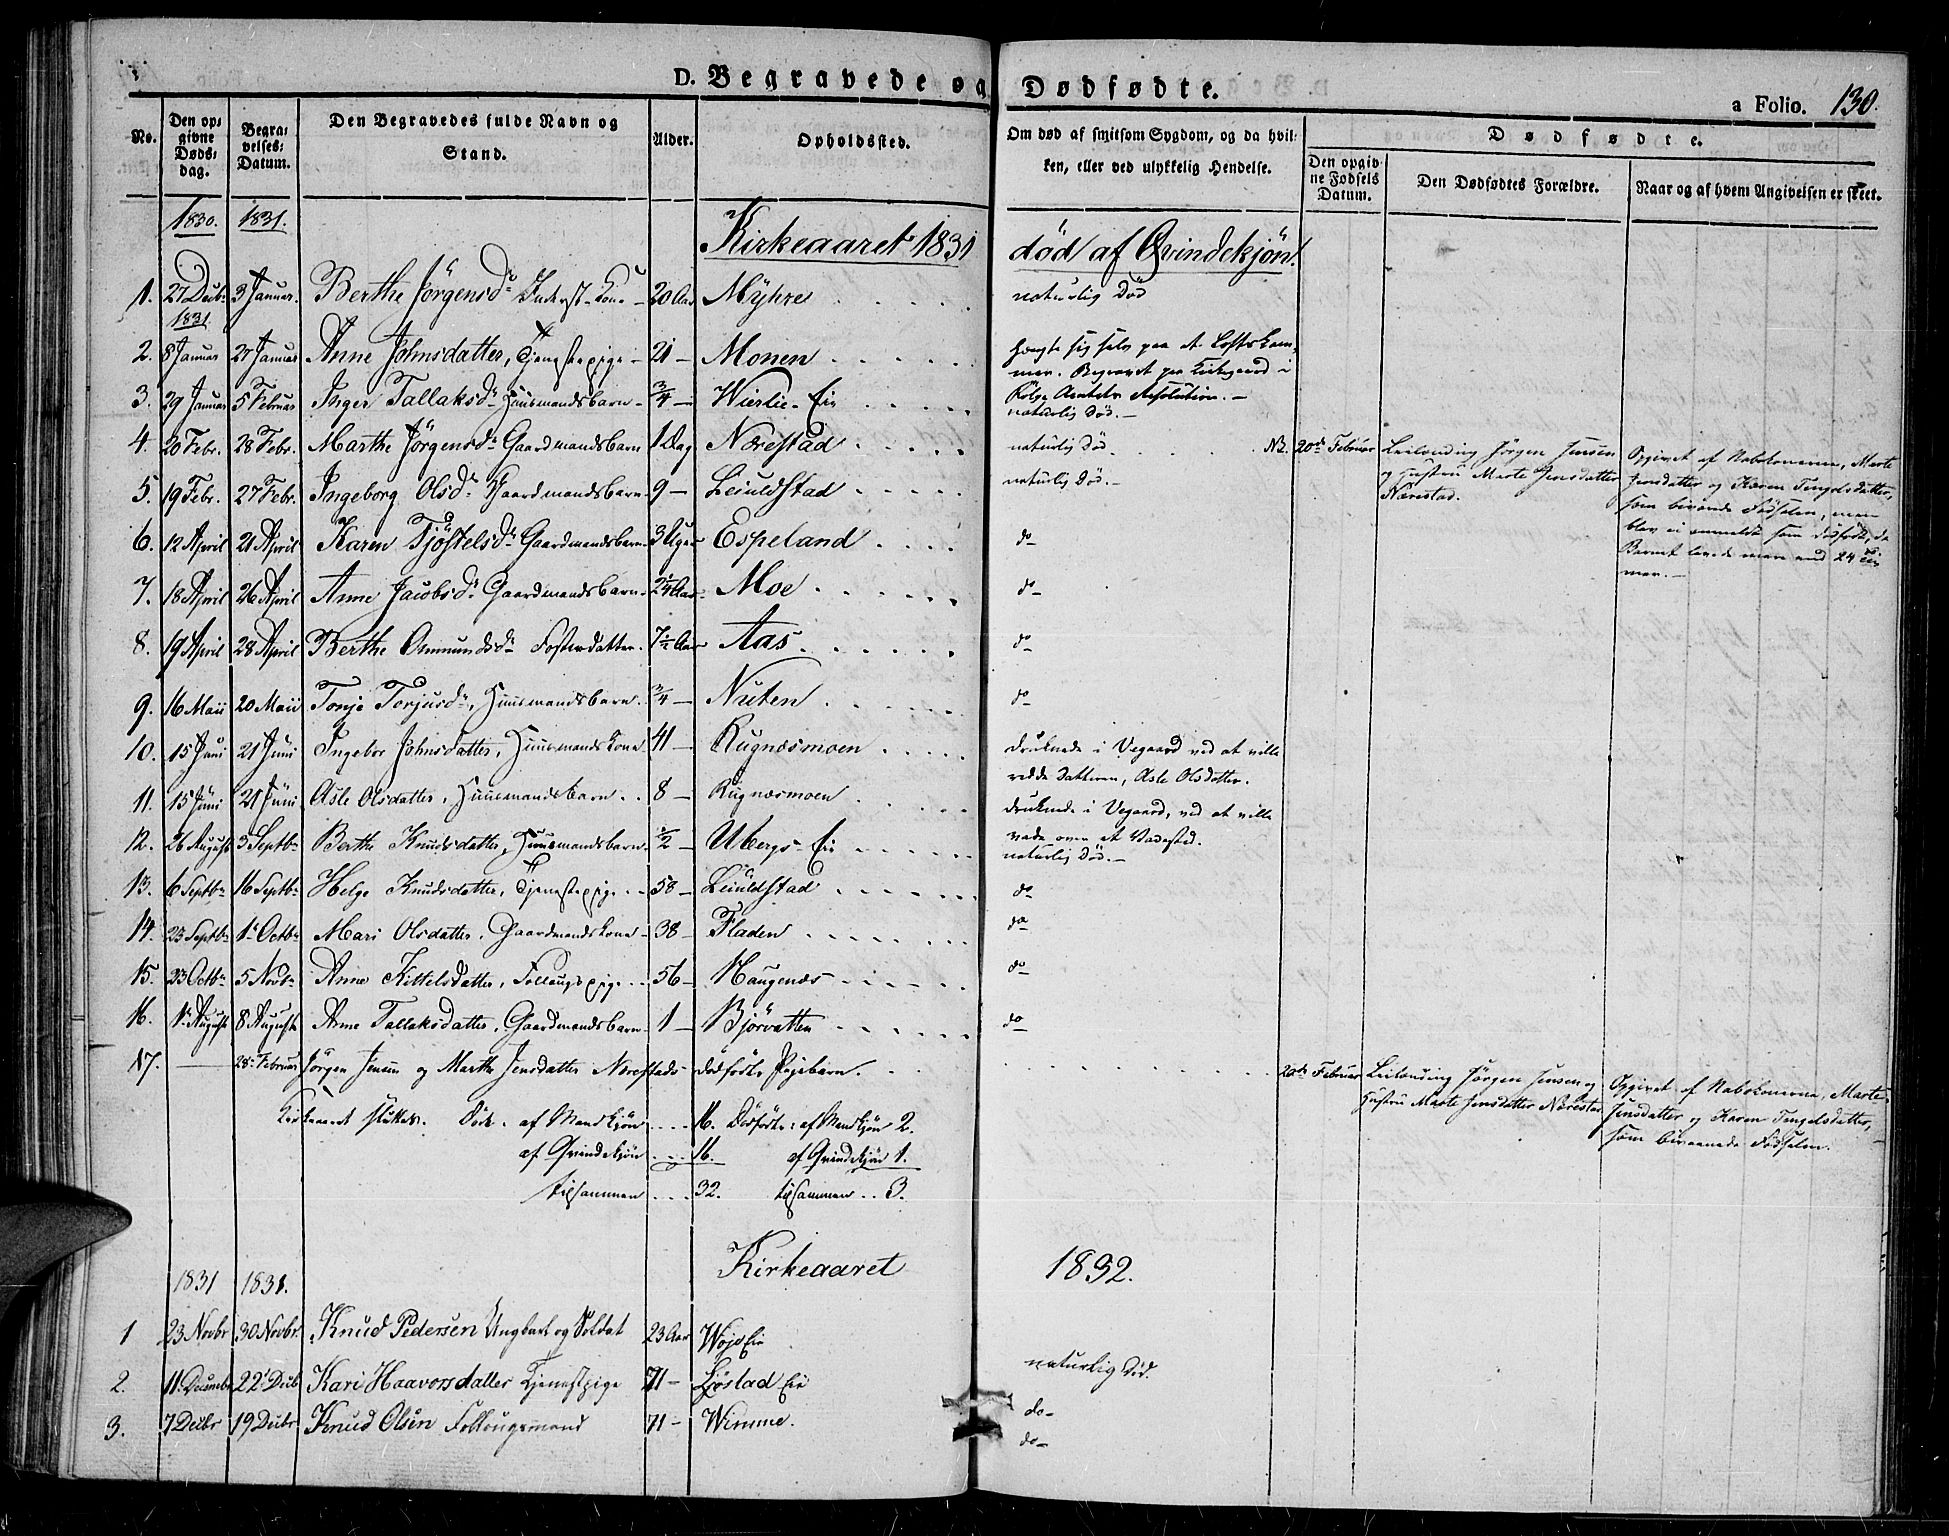 D. Begravede og Dødfødte.
a Folio. 130.
No. Den opgivne Dødsdag. Begravelses-Datum. Den Begravedes fulde Navn og Stand. Alder. Opholdssted. Om død af smitsom Sygdom, og da hvilken, eller ved ulykkelig Hendelse. Dødfødte. Den opgivne Fødsels Datum. Den Dødfødtes Forældre. Naar og af hvem Angivelsen er skeet.
1830. 1831. Kirkeaaret 1831 død af Qvindekjøn.
1. 27 Decbr 3 Januar. Berthe Jørgensdr Inderst-Kone 20 Aar Myhre naturlig Død
1831
2. 8 Januar 27 Januar Anne Johnsdatter, Tjenestepige 21 — Monen hængte sig selv paa et Loftskammer. Begravet paa Kirkegaard Følge Amtets Resolution. —
3. 29 Januar 5 Februar Inger Tallaksdr Huusmandsbarn 3/4 — Wierlie-Eie naturlig Død. —
4. 20 Febr. 28 Febr. Marthe Jørgensdr Gaardmandsbarn 1 Dag Nærestad naturlig Død NB. 20de Februar Leilænding Jørgen Jensen og Hustru Marte Jensdatter Nærestad. Opgivet af Nabokonerne, Marte Jensdatter og Karen Tengelsdatter, som bivånede Fødselen, men blev ei anmeldt som dødfødt, da Barnet levede mere end 24 Timer. —
5. 19 Febr. 27 Febr. Ingeborg Olsdr Gaardmandsbarn 9 — Leiuldstad naturlig Død. —
6. 12 April 21 April Karen Tjøstelsdr Gaardmandsbarn 3 Uger Espeland do
7. 18 April 26 April Anne Jacobsdr Gaardmandsbarn 2 1/4 Aar Moe do
8. 19 April 28 April Berthe Omundsdr Fosterdatter 7 1/2 Aar Aas do
9. 16 Maii 20 Maii Tonje Torjusdr, Huusmandsbarn 3/4 — Nuten do
10. 15 Juni 21 Juni Ingebor Johnsdatter, Huusmandskone 41 — Rugnæsmoen druknede i Vegaard ved at ville redde Datteren, Asle Olsdatter.
11. 15 Juni 21 Juni Asle Olsdatter, Huusmandsbarn 8 — Rugnæsmoen druknede i Vegaard, ved at ville vade over et Vadested.
12. 26 August 3 Septbr Berthe Knudsdatter, Huusmandsbarn 1/2 — Ubergs-Eie naturlig Død. —
13. 6 Septbr 16 Septbr Helge Knudsdatter, Tjenestepige 58 — Leiuldstad do
14. 23 Septbr 1 Octbr Mari Olsdatter, Gaardmandskone 38 — Fladen do
15. 23 Octbr 5 Novbr Anne Kittelsdatter, Follaugspige 56 — Haugenæs do
16. 1 August 8 August Anne Tallaksdatter, Gaardmandsbarn 1 — Bjørvatten do
17. — 28 Februar Jørgen Jensen og Marthe Jensdatter Nærestads dødfødte Pigebarn. 20de Februar Leilænding Jørgen Jensen og Hustru Marte Jensdatter Nærestad Opgivet af Nabokonerne, Marte Jensdatter og Karen Tengelsdatter, som bivaanede Fødselen.
Kirkeaaret sluttes. Døde af Mandkjøn 16. Dødfødte: af Mandkjøn 2.
af Qvindekjøn 16. af Qvindekjøn 1.
tilsammen 32. tilsammen 3.
Kirkeaaret 1832.
1831 1831.
1 23 Novbr 30 Novbr. Knud Pedersen Ungkarl og Soldat 23 Aar naturlig Død.
2. 11 Decembr 22 Decbr Kari Haavorsdatter Tjenestpige 71 — Løstad Eie do —
3. 7 Decbr 19 Decbr Knud Olsen Follougsmand 71 — Wimme. do —